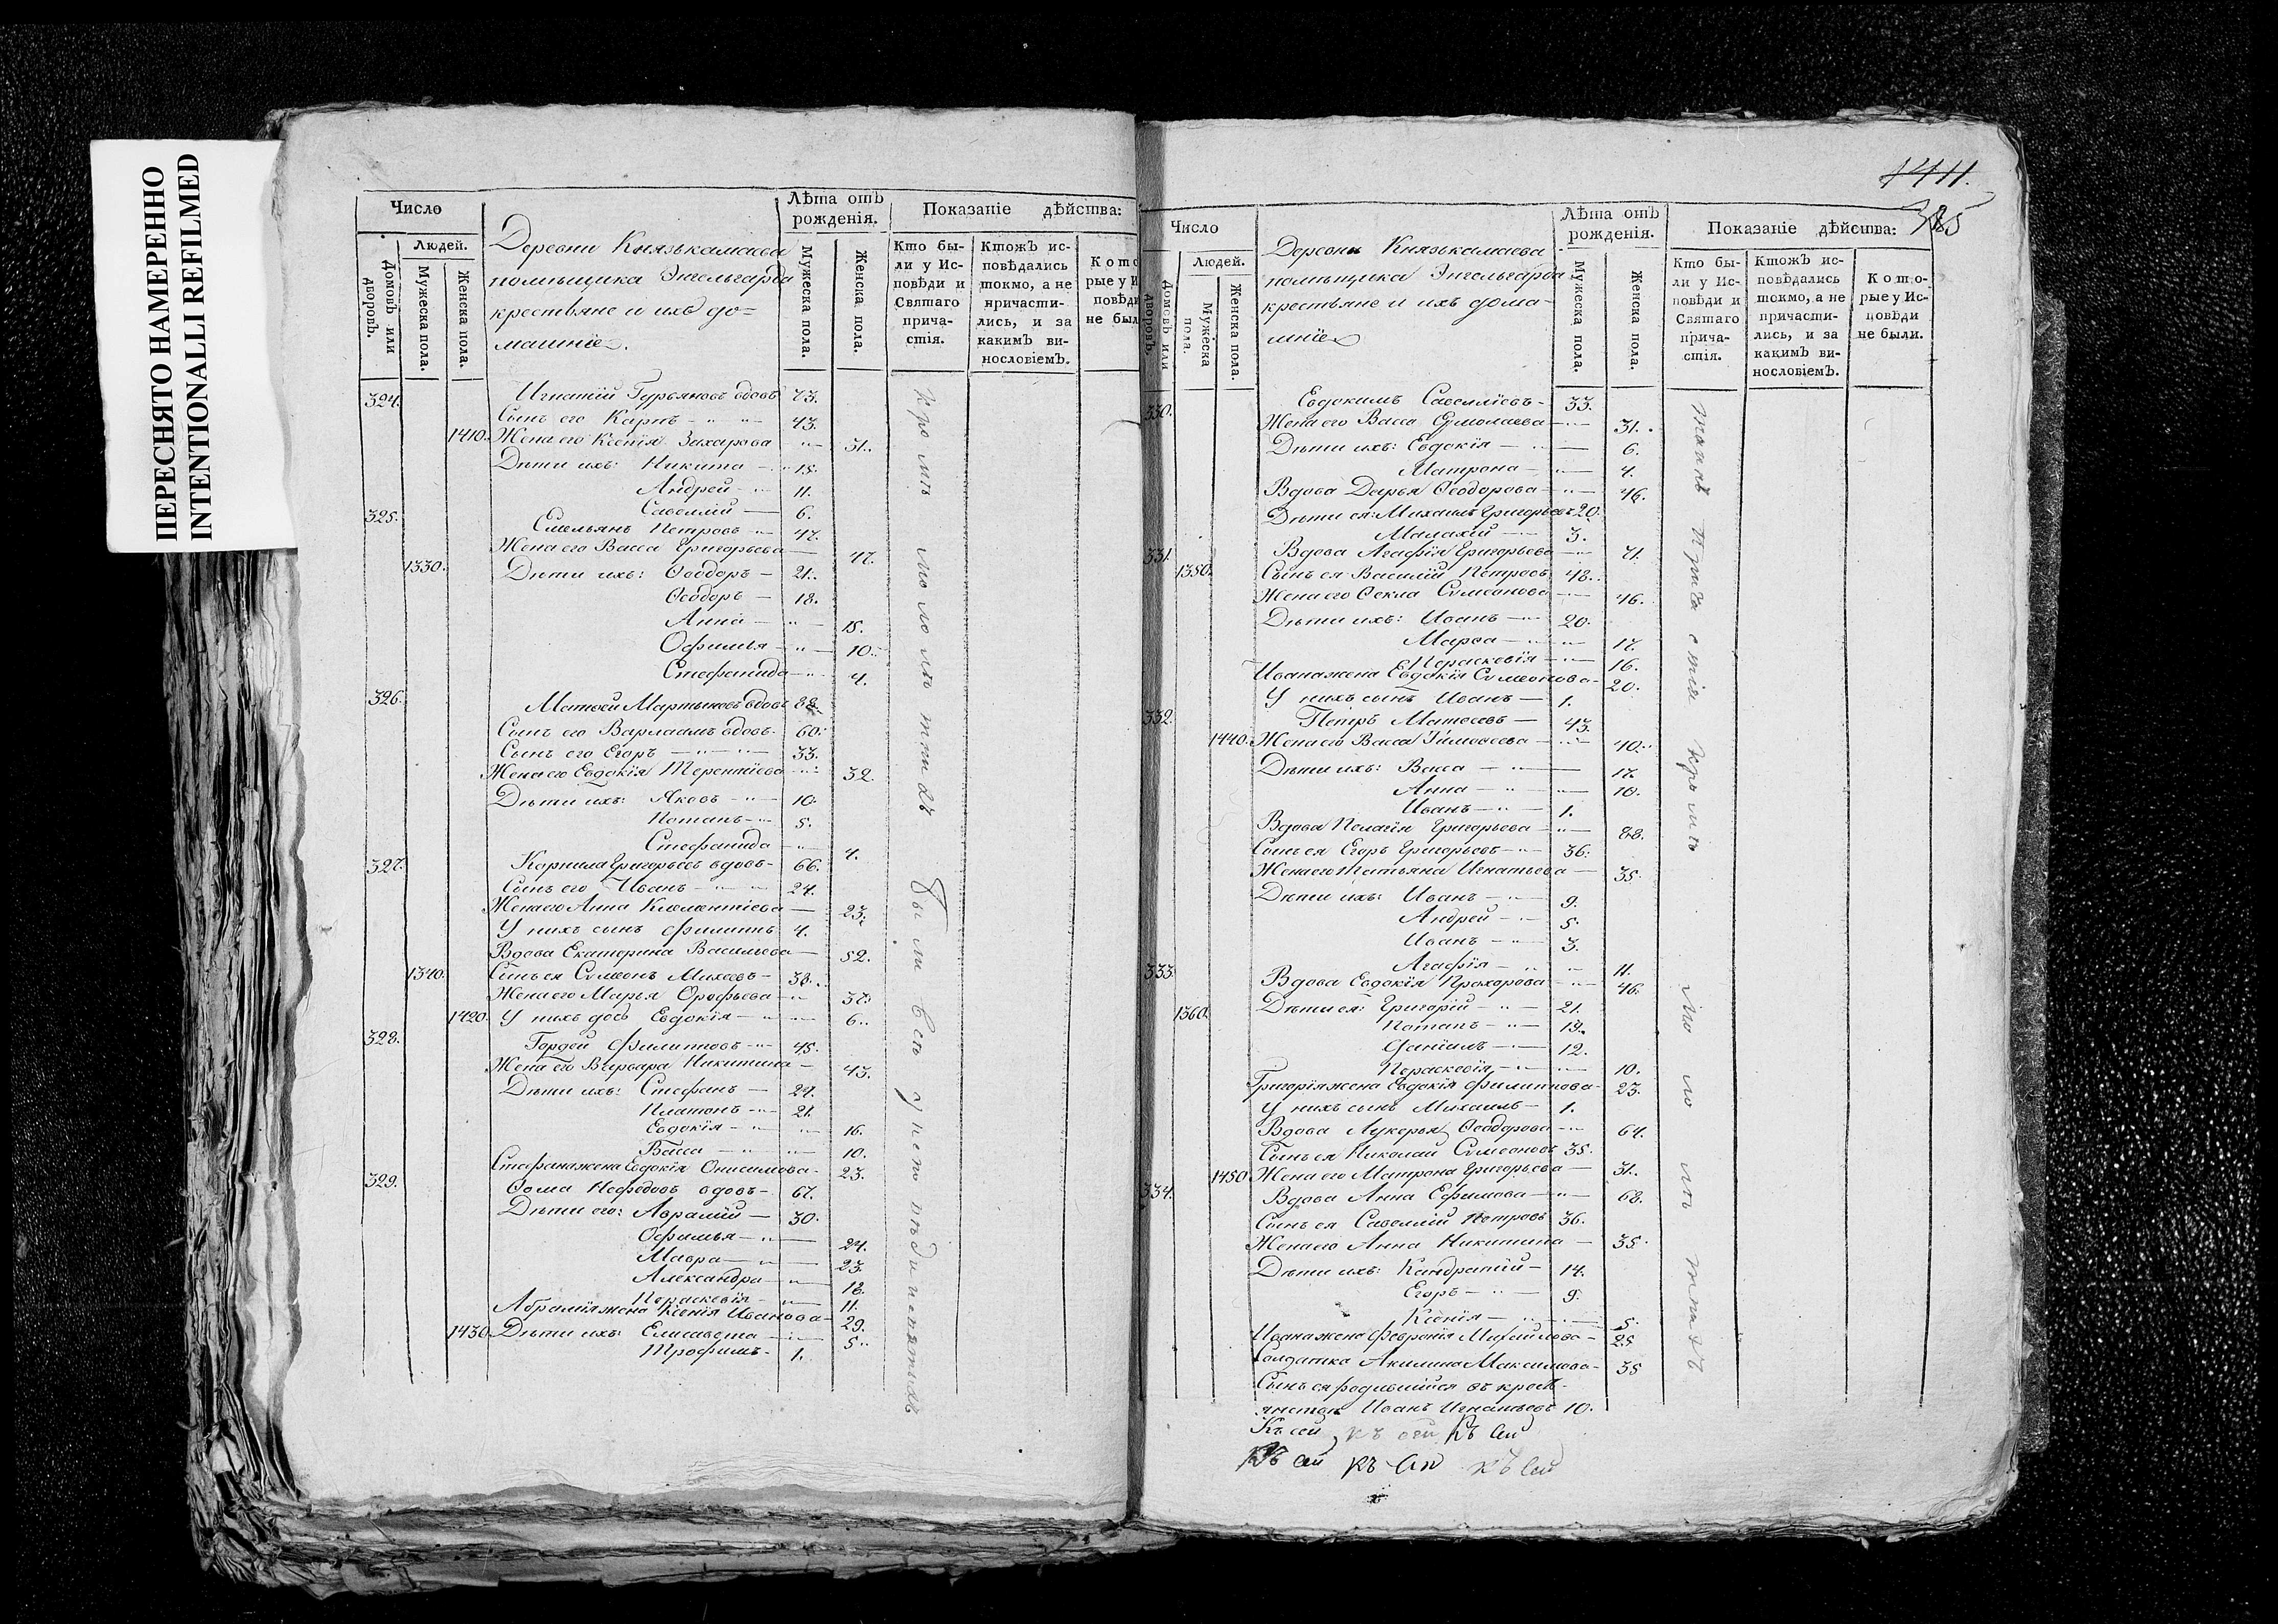 ПЕРЕСНЯТО НАМЕРЕННО
INTENTIONALLI REFILMED
Число
Людей.
Домовъ или дворовъ.
Мужеска пола.
Женска пола.
Деревни Князькамаева
помѣщика Энгельгарда
крестьяне и ихъ до=
машніе.
Лѣта отъ рожденія.
Мужеска пола.
Женска пола.
Показаніе дѣйства:
Кто были у Исповѣди и Святаго причастія.
Ктожъ исповѣдались токмо, а не причастились, и за какимъ винословіемъ.
324. Игнатій Гурьяновъ вдовъ 73.
Сынъ его Карпъ 43.
1410. Жена его Ксенія Захарова 31.
Дѣти ихъ: Никита 15.
Андрей 11.
Савелій 6.
325. Емельянъ Петровъ 47.
Жена его Васса Григорьева 47.
1330. Дѣти ихъ: Ѳеодоръ 21.
Ѳеодоръ 18.
Анна 15.
Офимья 10.
Стефанида 4.
326. Матѳей Мартыновъ вдовъ
Сынъ его Варлаамъ вдовъ 60.
Сынъ его Егоръ 33.
Жена его Евдокія Терентіева 32.
Дѣти ихъ: Яковъ 10.
Потапъ 5.
Стефанида 4.
327. Корнила Григорьевъ вдовъ 66.
Сынъ его Иванъ 24.
Жена его Анна Климентіева 23.
У нихъ сынъ Филиппъ 4.
Вдова Екатерина Васильева 52.
1340. Сынъ ея Симеонъ Михеевъ 38.
Жена его Марья Орефьева 37.
1420. У нихъ дочь Евдокія 6.
328. Гордей Филиповъ 45.
Жена его Варвара Никитина 43.
Дѣти ихъ: Стефанъ 24.
Платонъ 21.
Евдокія 16.
Васса 10.
Стефана жена Евдокія Онисимова 23.
329. Ѳома Нефедовъ вдовъ 67.
Дѣти его: Аврамій 30.
Офимья 24.
Мавра 23.
Александра
Параскевія 11.
Абрамія жена Ксенія Иванова 29.
1430. Дѣти ихъ: Елисавета 5.
Трофимъ 1.
Кромѣ были всѣ у исповѣди и святыхъ
1411.
385
Число
Людей.
Домовъ или дворовъ.
Мужеска пола.
Женска пола.
Деревни Князькамаева
помѣщика Энгельгарда
крестьяне и ихъ дома-
шніе
Лѣта отъ рожденія.
Мужеска пола.
Женска пола.
Показаніе дѣйства:
Кто были у Исповѣди и Святаго причастія.
Ктожъ исповѣдались токмо, а не причастились, и за какимъ винословіемъ.
Которые у Исповѣди не были.
330. Евдокимъ Савеліевъ 33.
Жена его Васса Ермолаева 31.
Дѣти ихъ: Евдокія 6.
Матрона 4.
Вдова Дарья Ѳеодорова 46.
Дѣти ея: Михаилъ Григорьевъ 20.
Малахій 3.
331. Вдова Агафія Григорьева 71.
1350. Сынъ ея Василій Петровъ 48.
Жена его Ѳекла Симеонова 46.
Дѣти ихъ: Иванъ 20.
Марѳа 17.
Параскевія 16.
Ивана жена Евдокія Симеонова 20.
У нихъ сынъ Иванъ 1.
332. Петръ Матвеевъ 43.
1440. Жена его Васса Тимоѳеева 40.
Дѣти ихъ: Васса 17.
Анна 10.
Иванъ 1.
Вдова Пелагія Григорьева
Сынъ ея Егоръ Григорьевъ 36.
Жена его Татьяна Игнатьева 35.
Дѣти ихъ: Иванъ 9.
Андрей 5.
Иванъ 3.
Агафія 11.
333. Вдова Евдокія Прохорова 46.
1360. Дѣти ея: Григорій 21.
Потапъ
Даніилъ 12.
Параскевія 10.
Григорія жена Евдокія Филиппова 23.
У нихъ сынъ Михаилъ 1.
Вдова Лукерья Ѳеодорова 64.
Сынъ ея Николай Симеоновъ 35.
1450. Жена его Матрона Григорьева 31.
334. Вдова Анна Ефимова 68.
Сынъ ея Савелій Петровъ 36.
Жена его Анна Никитина 35.
Дѣти ихъ: Кандратій 14.
Егоръ 9.
Ксенія 5.
Ивана жена Февронія 25
Солдатка Акилина Максимова 35
Сынъ ея родившійся въ кресть-
янствѣ Иванъ Игнатьевъ 10.
Къ сей къ сей Къ сей
Къ сей къ сей къ сей